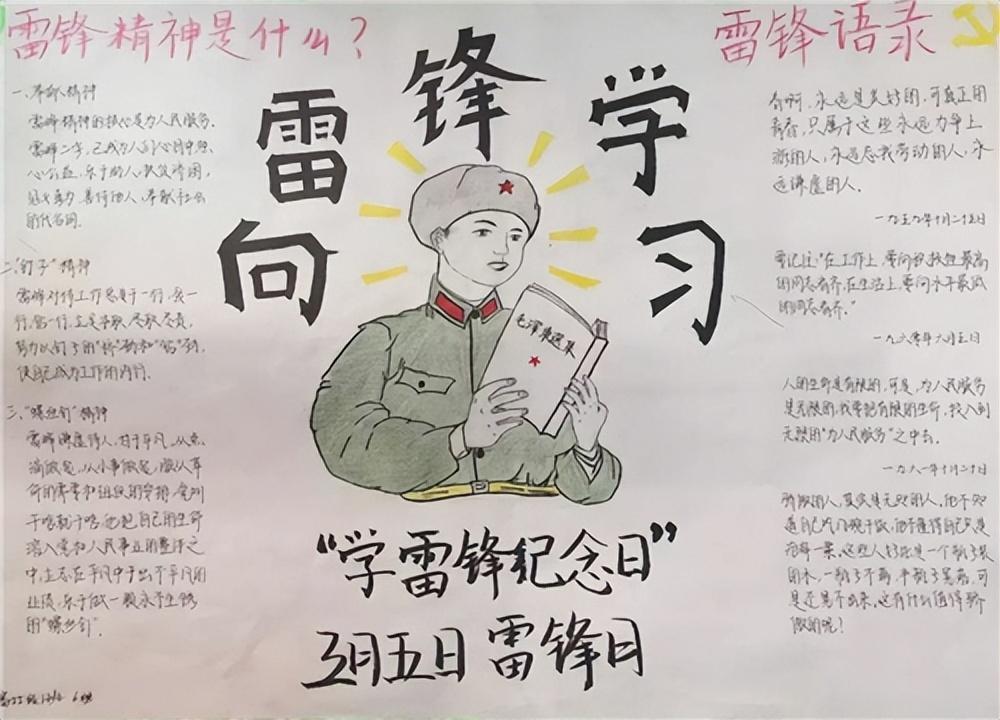 雷锋精神是什么？
雷锋语录
向雷锋学习
毛泽东选集
一、奉献精神
雷锋精神的核心是为人民服务.
雷锋二字，已成为人们心目中热
心公益，乐于助人，扶贫济困，
见义勇为，善待他人，奉献社会
的代名词.
二、"钉子"精神
雷锋对待工作总是干一行，爱一
行，钻一行，立足本职，尽职尽责，
努力以钉子的"挤"劲和"钻"劲，
使自己成为工作的内行.
三、"螺丝钉"精神
雷锋谦虚待人，甘于平凡，从点
滴做起，从小事做起，服从革
命的需要和组织的安排，党叫
干啥就干啥，他把自己的生命
溶入党和人民事业的整体之
中，立志在平凡中干出不平凡的
业绩，乐于做一颗永不生锈
的"螺丝钉".
青春啊，永远是美好的，可真正的
青春，只属于这些永远力争上
游的人，永远忘我劳动的人，永
远谦虚的人.
一九五九年十月二十五日
要记住："在工作上，要向积极性最高
的同志看齐，在生活上，要向水平最低
的同志看齐."
一九六零年六月五日
人的生命是有限的，可是，为人民服务
是无限的，我要把有限的生命，投入到
无限的"为人民服务"之中去.
一九六一年十月二十日
骄傲的人，其实是无知的人，他不知
道自己几斤几碗干饭，他不懂得自己只是
沧海一粟，这些人好比是一个瓶子装
的水，一瓶子不响，半瓶子晃荡，可
是还晃不出来，这有什么值得骄
傲的呢！
"学雷锋纪念日"
三月五日 雷锋月